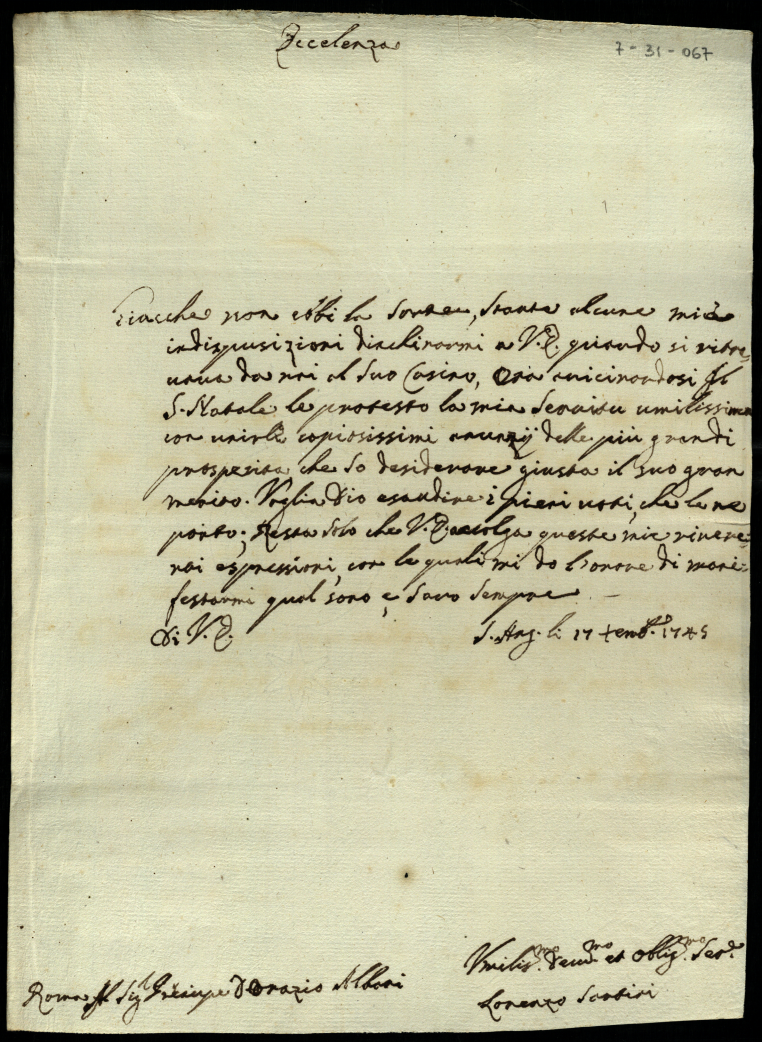 Eccelenza
7-31-067
Giacche non ebbi la sorte, stante alcune mie
indispusizioni d'inchinarmi a V.E. quando si ritro=
vava da noi al suo Casino, Ora avicinandosi Il
S. Natale le protesto la mia servitù umilissima
con unirle copiosissimi anunzij delle più grandi
prosperità che so desiderare giusta il suo gran
merito. Voglia Dio esaudire i pieni voti, che le ne
porto; Resta solo che V.E. acolga queste mie rivere=
nti espressioni, con le quali mi do l'onore di mani=
festarmi qual sono e saro sempre
Di V.E.
S. Ang. li 17 Xemb.e 1745
Umilis.mo Devu.mo et Oblig.mo Ser.e
Roma Al Sig.l Prēcipe D Orazio Albani
Lorenzo Santini